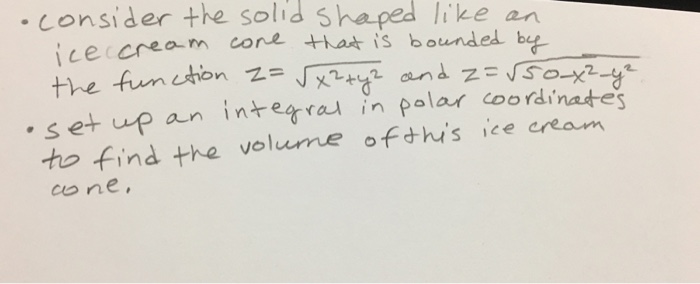 • consider the solid shaped like an
ice cream cone that is bounded by
the function z = √x²+y² and z = √50-x²-y²
• set up an integral in polar coordinates
to find the volume of this ice cream
cone.